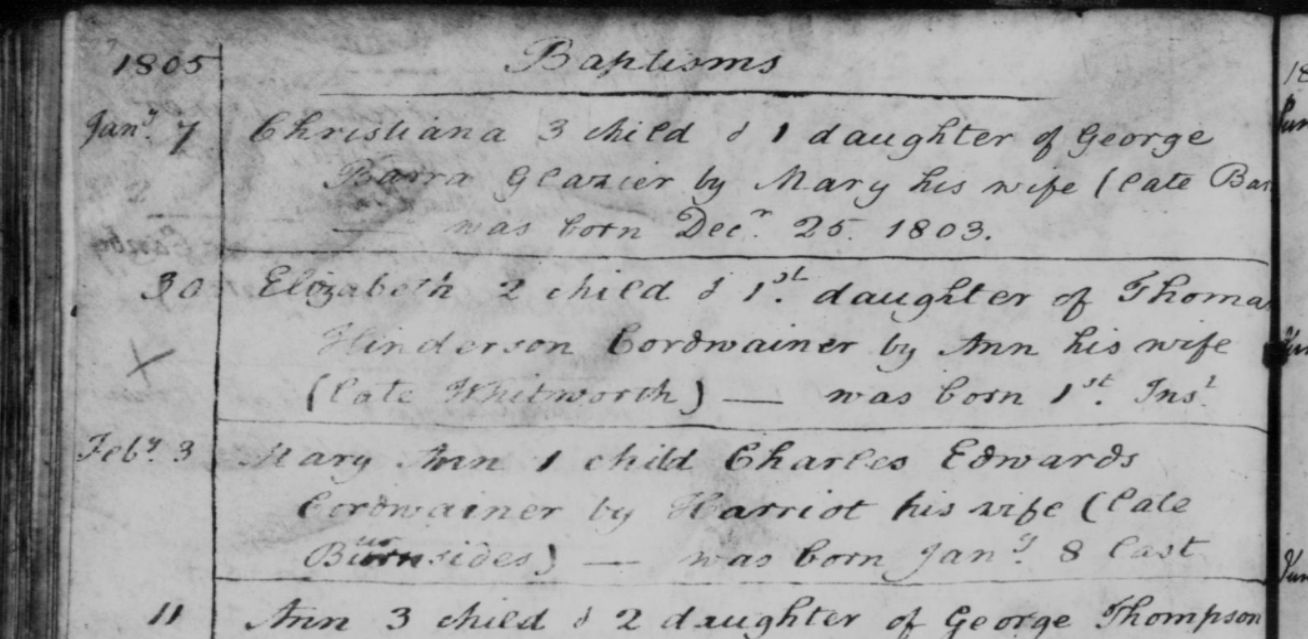 1805 Baptisms
Jany. 7 Christiana 3 child & 1 daughter of George
Barra Glazier by Mary his wife (late
— was born Decr. 25. 1803.
30 Elizabeth 2 child & 1st. daughter of Thomas
Hinderson Cordwainer by Ann his wife
(late Whitworth) — was born 1st. Inst
Feby. 3 Mary Ann 1 child Charles Edwards
Cordwainer by Harriot his wife (late
Burnsides) — was born Jany 8 last
11 Ann 3 child & 2 daughter of George Thompson